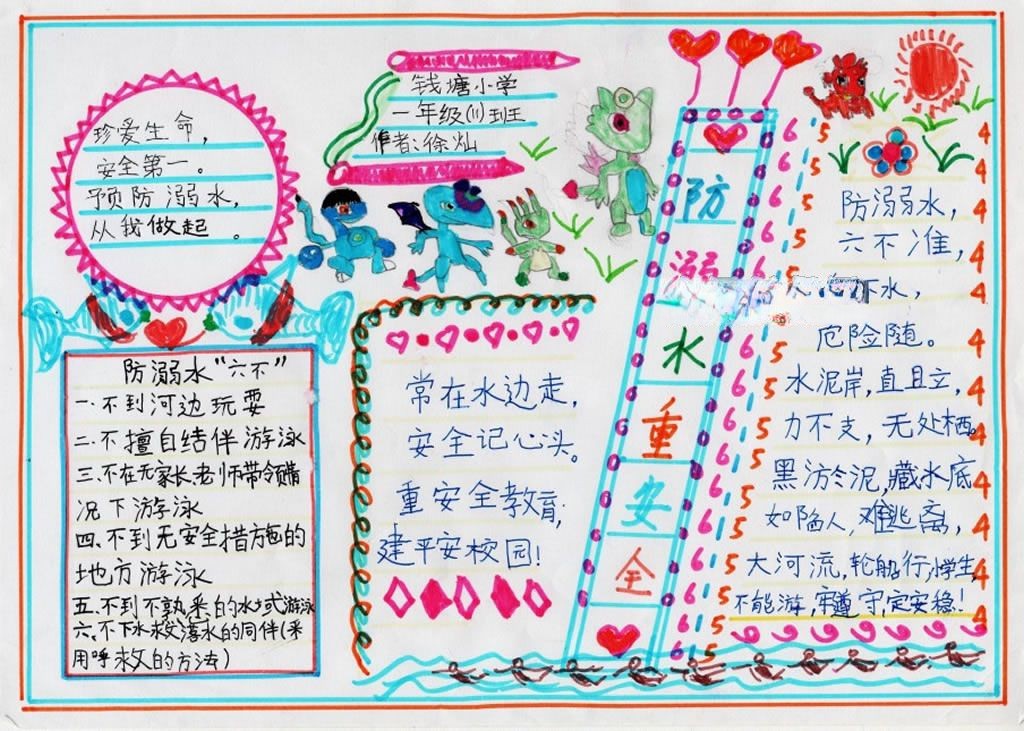 珍爱生命,
安全第一。
预防溺水,
从我做起。
钱塘小学
一年级(11)班
作者:徐灿
防溺水"六不"
一.不到河边玩耍
二.不擅自结伴游泳
三.不在无家长、老师带领情
况下游泳
四.不到无安全措施的
地方游泳
五.不到不熟悉的水域游泳
六.不下水救落水的同伴(采
用呼救的方法)
常在水边走,
安全记心头。
重安全教育,
建平安校园!
防
溺
水
重
安
全
防溺水,
六不准,
下水,
危险随。
水泥岸,直且立,
力不支,无处栖。
黑淤泥,藏水底
如陷人,难逃离,
大河流,轮船行,小学生,
不能游,牢遵守,定安稳!